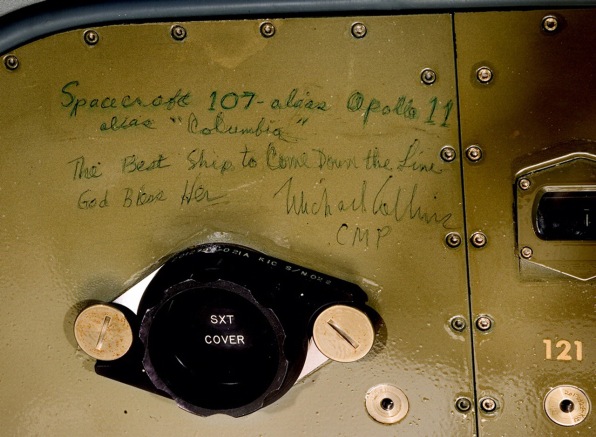 Spacecraft 107 - alias Apollo 11
alias "Columbia"
The Best Ship to Come Down the Line
God Bless Her
Michael Collins
CMP
021A KIC S/N022
SXT
COVER
121